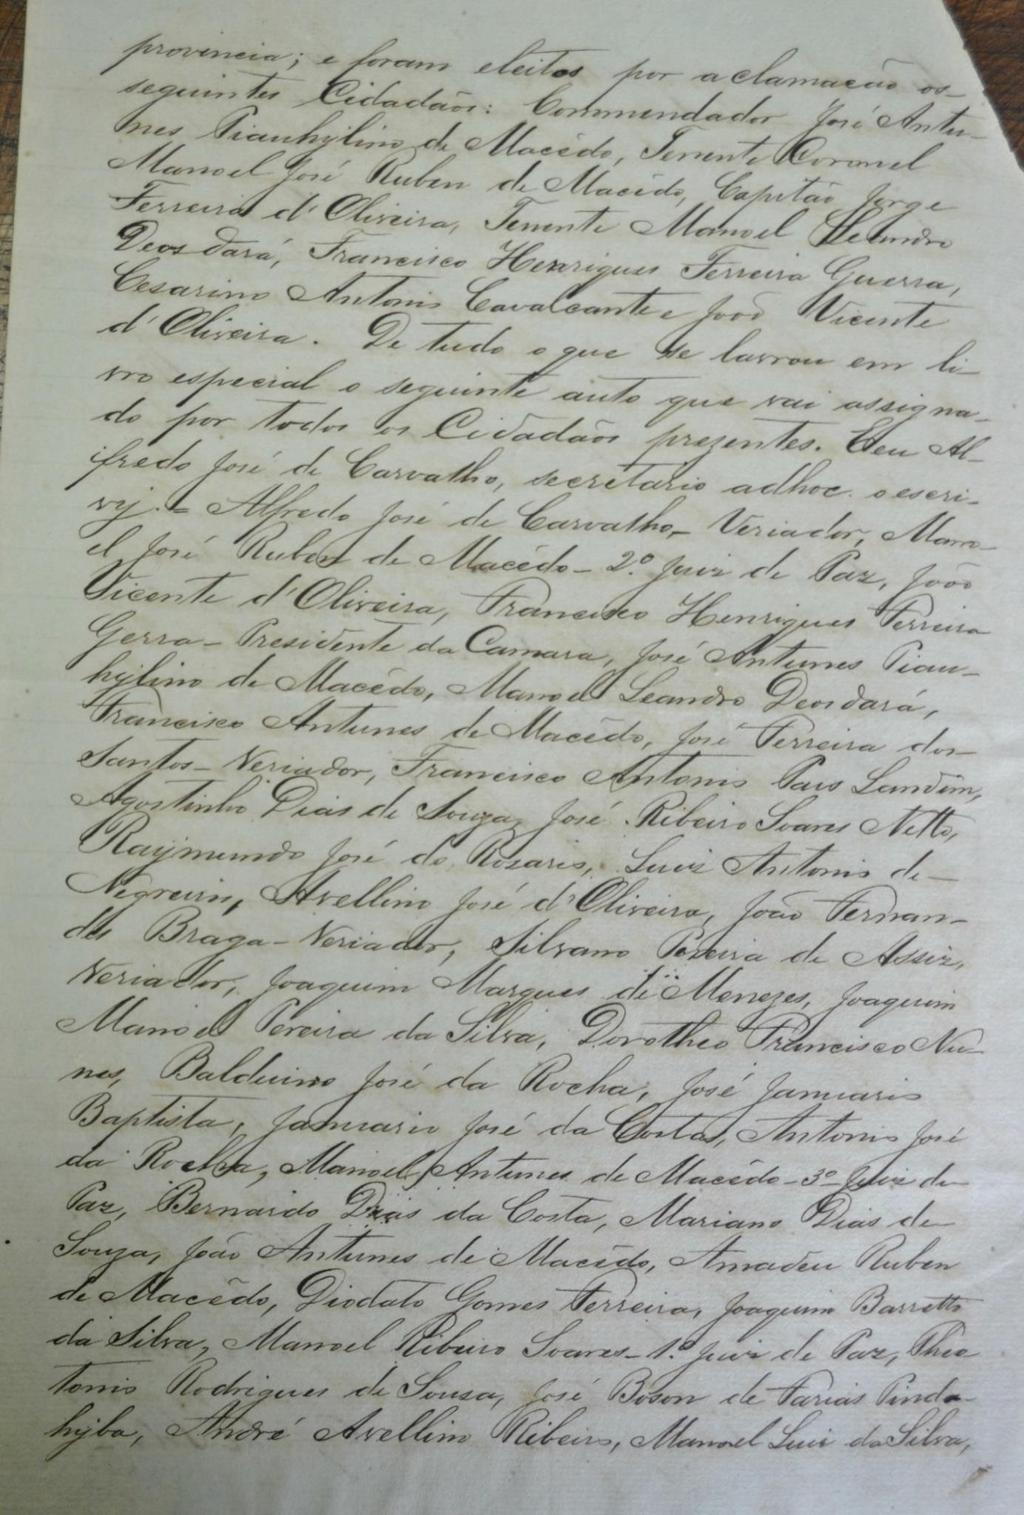 provincia; e foram eleitos por aclamacão os
seguintes Cidadãos: Commendador José Antu-
nes Piauhylino de Macêdo, Tenente Coronel
Manoel José Ruben de Macêdo, Capitão Jorge
Ferreira d'Oliveira, Tenente Manoel Leandro
Deosdará, Francisco Henriques Ferreira Guerra,
Cesarino Antonio Cavalcante e João Vicente
d'Oliveira. De tudo o que se lavrou em li-
vro especial o seguinte auto que vai assigna-
do por todos os Cidadãos prezentes. Eu Al-
fredo José de Carvalho, secretario adhoc o escri-
vy. = Alfredo José de Carvalho, Veriador, Mano-
el José Ruben de Macêdo - 2º Juiz de Paz, João
Vicente d'Oliveira, Francisco Henriques Ferreira
Gerra - Presidente da Camara, José Antunes Piau-
hylino de Macêdo, Manoel Leandro Deosdará,
Francisco Antunes de Macêdo, José Ferreira dos
Santos - Veriador, Francisco Antonio Paes Landim,
Agostinho Dias de Souza, José Ribeiro Soares Netto,
Raymundo José do Rosario, Luiz Antonio de
Negreiros, Avellino José d'Oliveira, João Fernan-
des Braga - Veriador, Silvano Pereira de Assiz,
Veriador, Joaquim Marques de Menezes, Joaquim
Manoel Pereira da Silva, Dorotheo Francisco Nu-
nes, Balduino José da Rocha, José Januario
Baptista, Januario José da Costa, Antonio José
da Rocha, Manoel Antunes de Macêdo - 3º Juiz de
Paz, Bernardo Dias da Costa, Mariano Dias de
Souza, João Antunes de Macêdo, Amadeu Ruben
de Macêdo, Diodato Gomes Ferreira, Joaquim Barretto
da Silva, Manoel Ribeiro Soares - 1º Juiz de Paz, Theo
tonio Rodrigues de Sousa, José Boson de Farias Pinda-
hyba, André Avellino Ribeiro, Manoel Luiz da Silva,